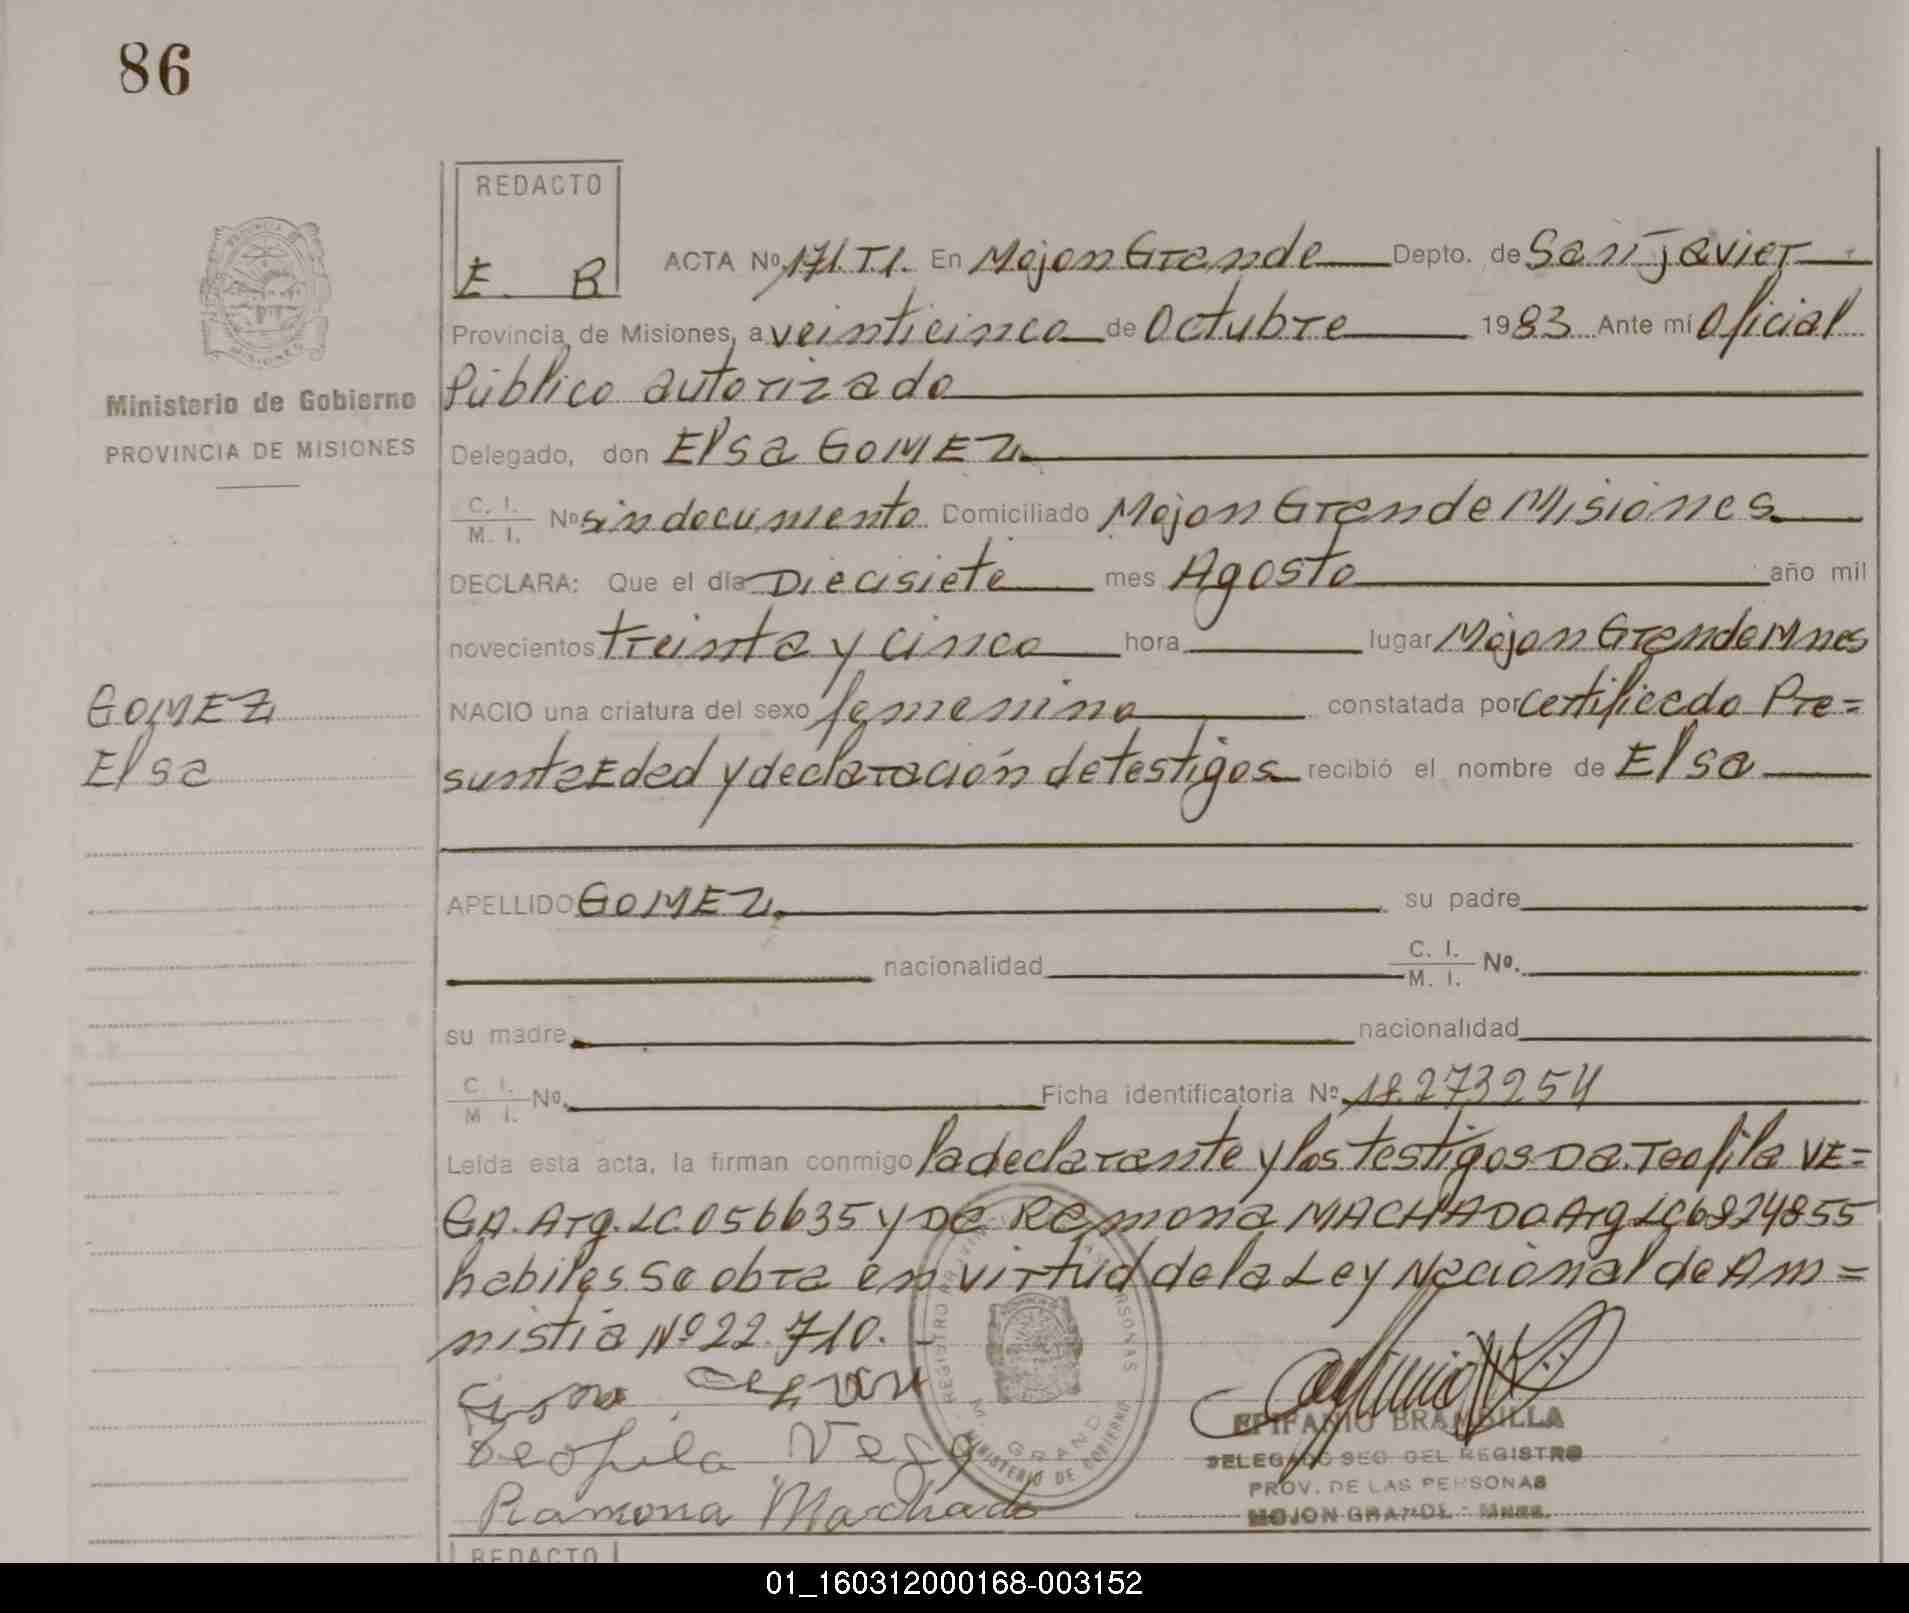 86
REDACTO
E. B
ACTA Nº 171.T.1. En Mojon Grande Depto. de San Javier
Provincia de Misiones, a veinticinco de Octubre 1983 Ante mi Oficial
Público autorizado
Ministerio de Gobierno
PROVINCIA DE MISIONES
Delegado, don Elsa GOMEZ
C. I.
M. I. Nº sin documento Domiciliado Mojon Grande Misiones
DECLARA: Que el día Diecisiete mes Agosto año mil
novecientos treinta y cinco hora lugar Mojon Grande Mnes
GOMEZ
Elsa
NACIO una criatura del sexo femenino constatada por certificado Pre=
sunta Edad y declaración de testigos recibió el nombre de Elsa
APELLIDO GOMEZ su padre
nacionalidad C. I.
M. I. Nº.
su madre nacionalidad
C. I.
M. I. Nº. Ficha identificatoria Nº 18.273254
Leída esta acta, la firman conmigo la declarante y los testigos Da. Teofila VE=
GA. Arg. LC. 056635 y Da Ramona MACHADO Arg LC 6824855
habiles. Se obra en virtud de la Ley Nacional de Am=
nistia Nº 22.710. -
Teofila Vega
Ramona Machado
MINISTERIO DE GOBIERNO
EPIFANIO BRANDILLA
DELEGADO SEC. DEL REGISTRO
PROV. DE LAS PERSONAS
MOJON GRANDE - Mnes.
REDACTO
01_160312000168-003152